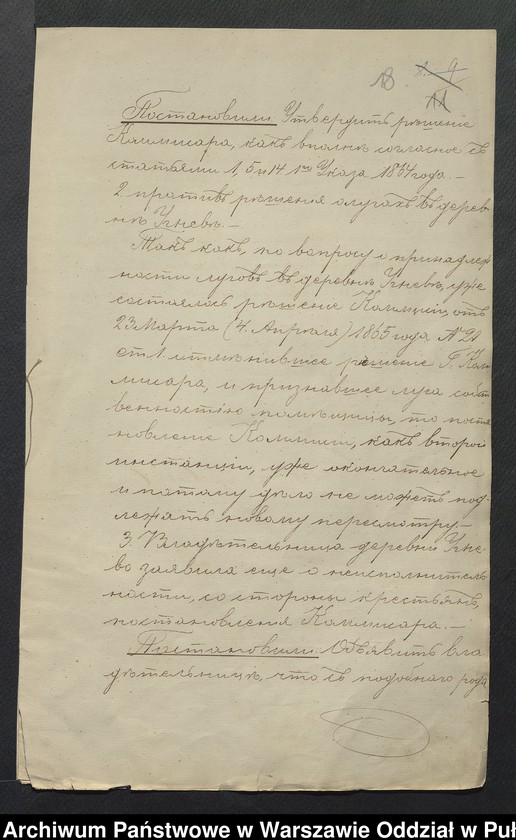 18 8. 9
11
Постановили: Утвердить рѣшеніе
Коммисара, какъ вполнѣ согласное съ
статьями 1, 5 и 14 1го Указа 1864 года. –
2 противъ рѣшенія о лугахъ въ дерев-
нѣ Угневъ. –
Такъ какъ, по вопросу о принадлеж
ности луговъ въ деревнѣ Угневъ, уже
состоялось рѣшеніе Коммисіи, отъ
23 Марта (4. Апрѣля) 1865 года, №
ст 1. отмѣнившее рѣшеніе Г. Ком
мисара, и признавшее луга собст
венностію помѣщицы, то поста
новленіе Коммисіи, какъ второй
инстанціи, уже окончательное
и потому дѣло не можетъ под-
лежать новому пересмотру. –
3. Владѣтельница деревни Угне-
во заявила еще о неисполнитель
ности, со стороны крестьянъ,
постановленія Коммисара. –
Постановили: Объявить вла
дѣтельницѣ, что съ подобнаго рода
Archiwum Państwowe w Warszawie Oddział w Puł